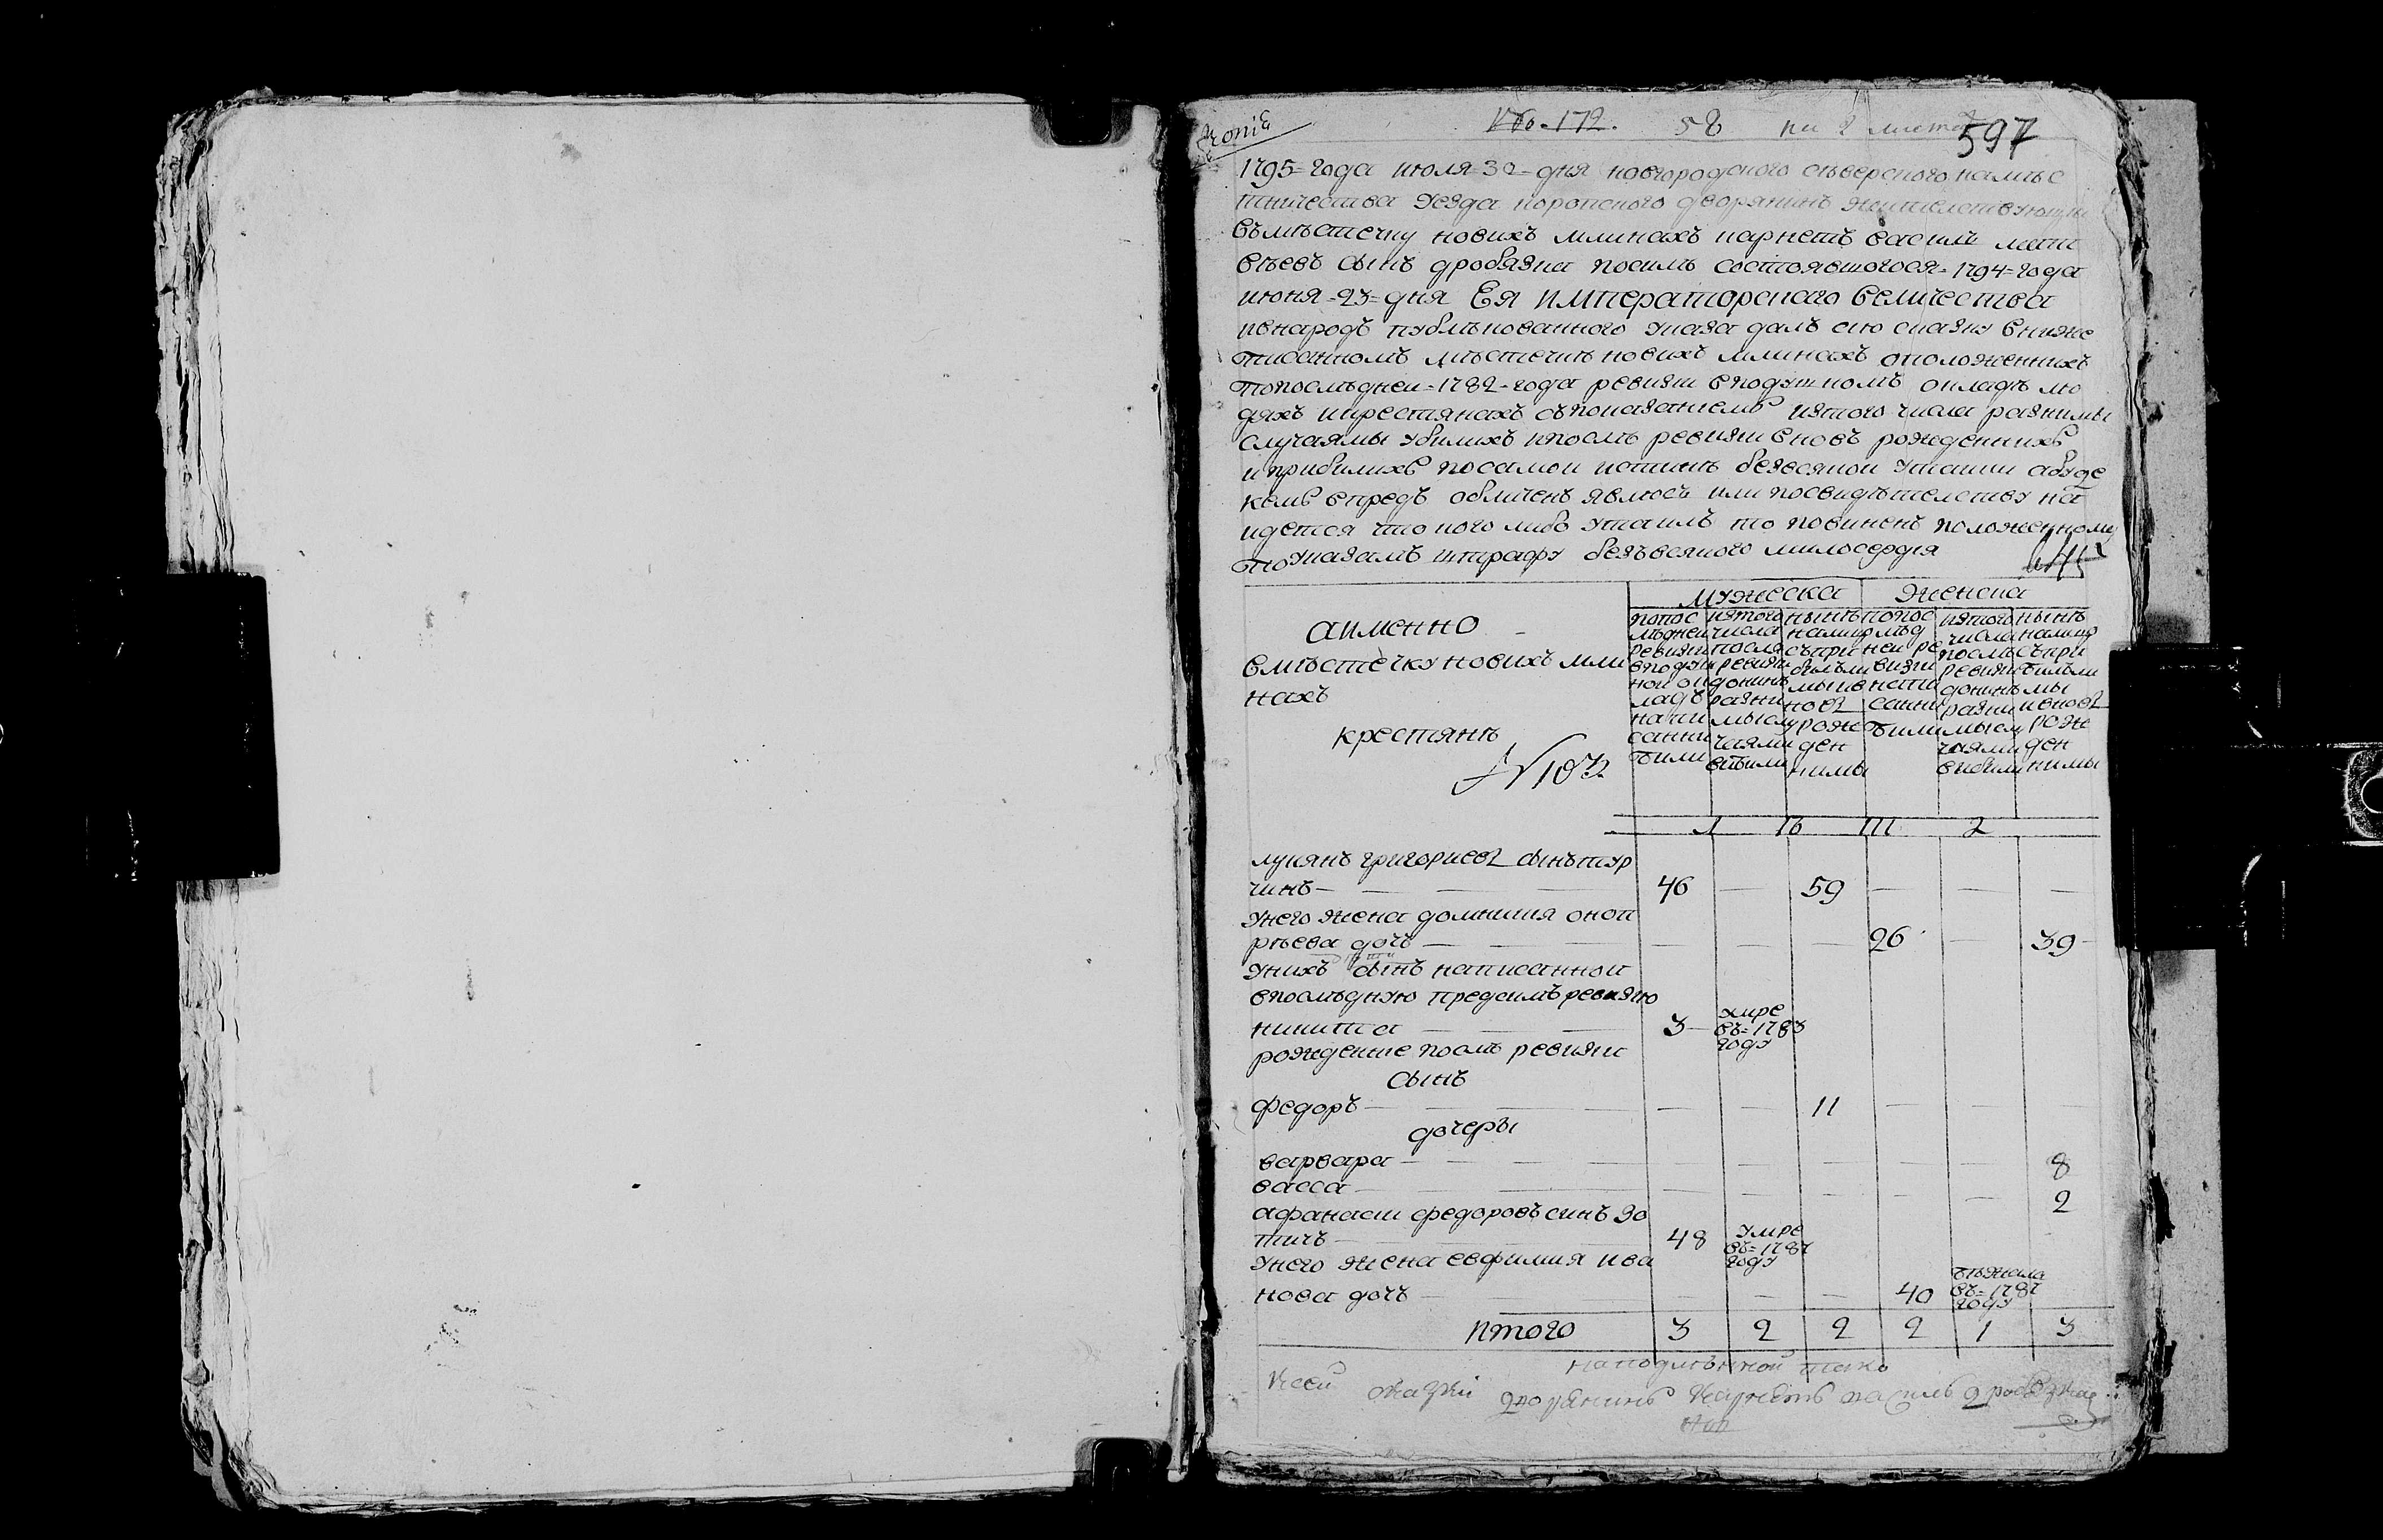 Копиѣ
№ 172. 58 на 2 листах 597
1795=года июля=30=дня новгородского сѣверского намѣс
тничества уезда коропского дворянинъ жителствующи
въ мѣстечку новихъ млинахъ карнетъ василъ мат
вѣевъ сынъ дробязка посилѣ состоявшогося=1794=года
июня=23=дня Ея императорского величества
ивнародъ публѣкованного указа далъ сию сказку внижє
писанномъ мѣстечкѣ новихъ млинахъ оположеннихъ
попослѣдней=1782=года ревизии вподушномъ окладѣ лю
дяхъ икрестянахъ съпоказаниемъ изтого числа разними
случаями убилихъ ипослѣ ревизии вновъ рожденнихъ
иприбилихъ посамои истиннѣ безвсякои утаики абуде
кемъ впредъ обличенъ явлюсъ или посвидѣтелству на
идется что кого либо утаилъ то повиненъ положенному
поуказамъ штрафу безъвсякого милосердия
мужеска женска
аименно
вмѣстечку новихъ мли
нахъ
крестянъ
попос лѣдней ревизии вподуш ной ок ладъ напи санни били
изтого числа после ревизии донинѣ разни мыслу чаями вибили
нынѣ налицо съпри билѣли мыив новъ рожє ден ними
попос лѣд ней ре визии напи санни били
изтого числа послѣ ревизии донинѣ разни мыслу чаями вибили
нынѣ налицо съпри билѣли мы ивновъ рожє ден ними
лукянъ григориевъ сынъ тур
чинъ — 46 — 59 — — —
унего жена домникия оноп
рѣева дочъ — — — — 26 — 39
унихъ сынъ написанной
впослѣдную предсимъ ревизию
никита — 3 умре въ=1783 году
рождение послѣ ревизии
сынъ
федоръ — — — 11 — — —
дочеры
варвара — — — — — — 8
васса — — — — — — 2
афанасии федоровъ синъ зо
тичъ — 48 умре въ=1787 году
унего жена евфимия ива
нова дочъ — — — — 40 бѣжала въ=1787 году
итого 3 2 2 2 1 3
наподлѣнной тако
Ксей сказки дворянинъ Карнетъ василъ дробязка